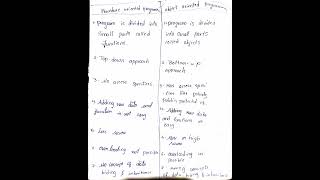 Procedure oriented program
1. program is divided into
small parts called
functions.
2. Top down approach
3. no access specifiers
4. Adding new data and
function is not easy
5. Less secure
6. overloading not possible
7. No concept of data
hiding & inheritance
object oriented programming
1. program is divided
into small parts
called objects
2. Bottom-up
approach
3. has access speci
like private
public protected
4. Adding new data
and functions is
easy
5. high
secure
6. overloading is
possible
7. concept
of data hiding & inheritance